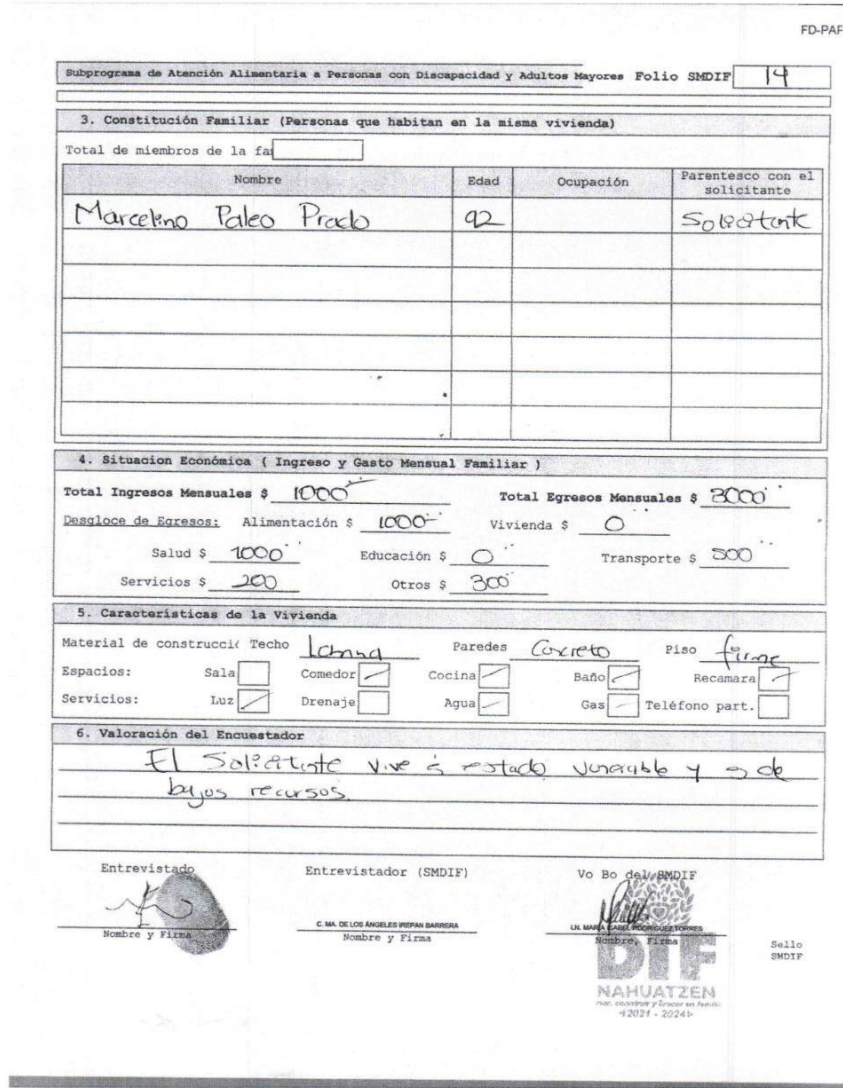 FD-PAF
Subprograma de Atención Alimentaria a Personas con Discapacidad y Adultos Mayores Folio SMDIF 14
3. Constitución Familiar (Personas que habitan en la misma vivienda)
Total de miembros de la fa
Nombre Edad Ocupación Parentesco con el solicitante
Marcelino Paleo Prado 92 Solicitante
4. Situacion Económica ( Ingreso y Gasto Mensual Familiar )
Total Ingresos Mensuales $ 1000 Total Egresos Mensuales $ 3000
Desgloce de Egresos: Alimentación $ 1000 Vivienda $ 0
Salud $ 1000 Educación $ 0 Transporte $ 500
Servicios $ 200 Otros $ 300
5. Características de la Vivienda
Material de construcci Techo Lamina Paredes Concreto Piso firme
Espacios: Sala Comedor Cocina Baño Recamara
Servicios: Luz Drenaje Agua Gas Teléfono part.
6. Valoración del Encuestador
El Solicitante vive estado vunerable y de
bajos recursos.
Entrevistado Entrevistador (SMDIF) Vo Bo del SMDIF
C. MA. DE LOS ÁNGELES IREPAN BARRERA LN. MARIA ISABEL RODRIGUEZ TORRES
Nombre y Firma Nombre y Firma Nombre, Firma Sello
SMDIF
DIF
NAHUATZEN
2021 - 2024